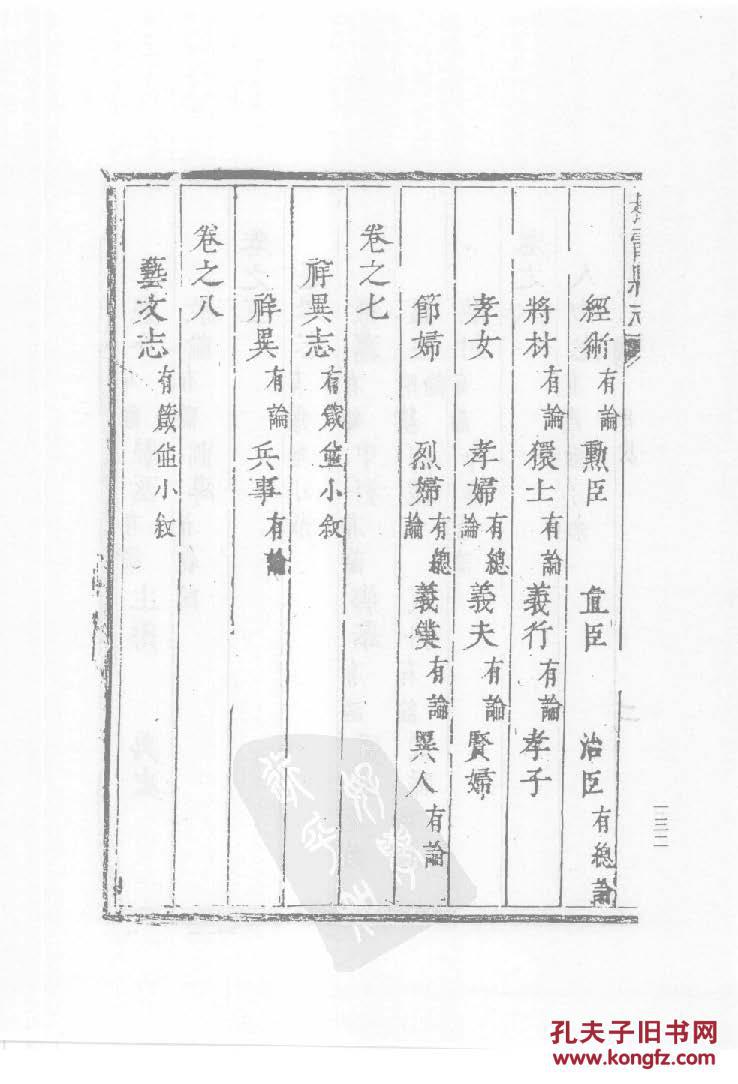 經術有論 勲臣 直臣 治臣有總論
將材有論 獧士有論 義行有論 孝子
孝女 孝婦有總論 義夫有論 賢婦
節婦 烈婦有總論 義僕有論 異人有論
卷之七
祥異志有箴並小敘
祥異有論 兵事有論
卷之八
藝文志有箴並小敘
一三二
孔夫子旧书网
www.kongfz.com